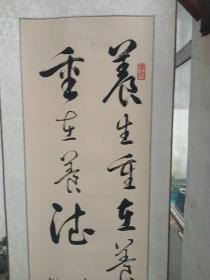 養生重在養
重在養德